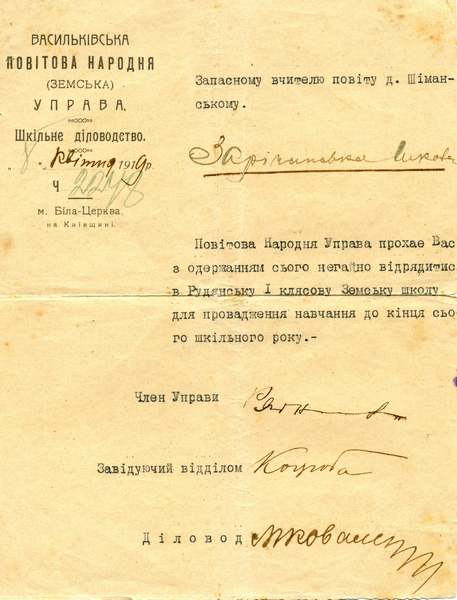 ВАСИЛЬКІВСЬКА
ПОВІТОВА НАРОДНЯ
(ЗЕМСЬКА)
УПРАВА.
Шкільне діловодство.
8 квітня 1919 р.
Ч 2248
м. Біла-Церква
на Київщині.
Запасному вчителю повіту д. Шіман-
ському.
Зарічанська
Повітова Народня Управа прохає Вас
з одержанням сього негайно відрядитис
в Рудянську I клясову Земську школу
для провадження навчання до кінця сьо-
го шкільного року.-
Член Управи
Завідуючий відділом Коцюба
Діловод